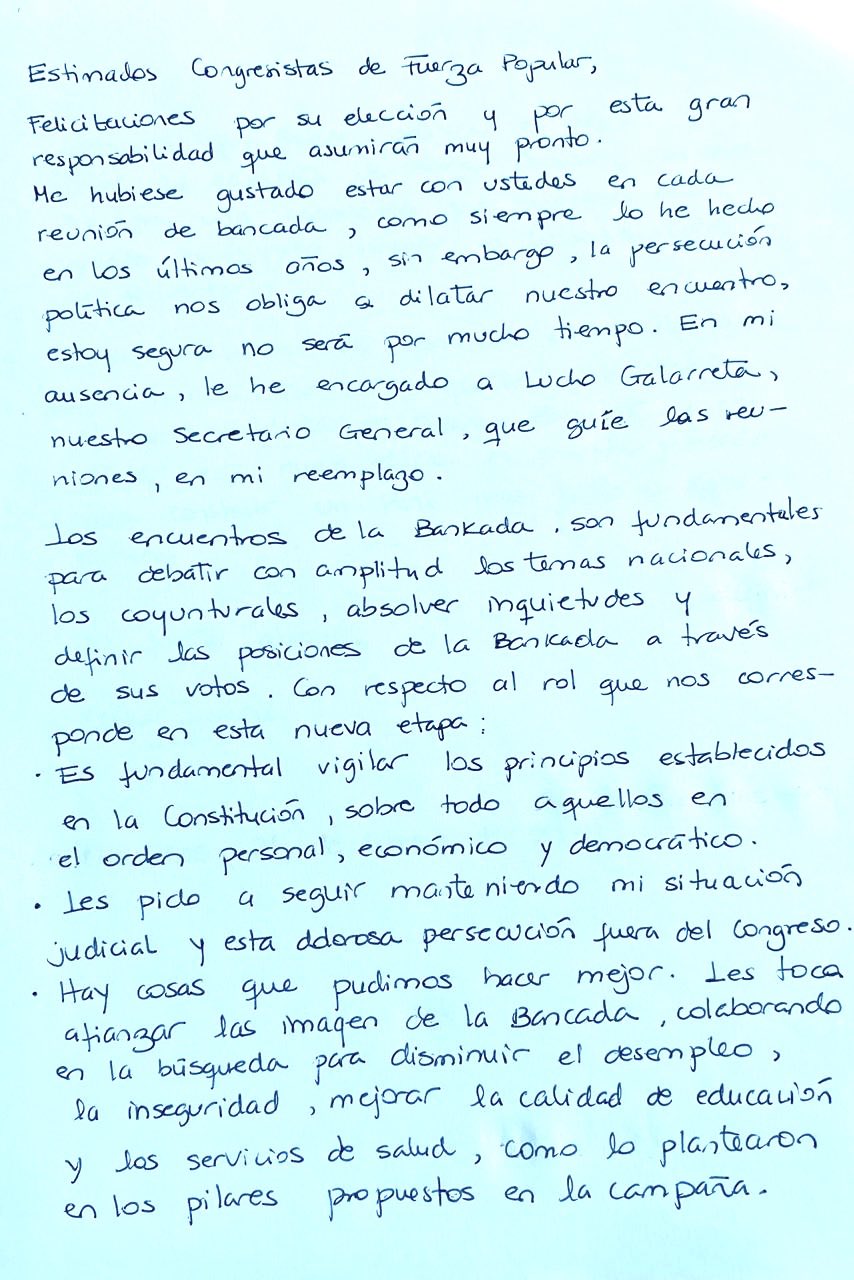 Estimados Congresistas de Fuerza Popular,
Felicitaciones por su elección y por esta gran
responsabilidad que asumirán muy pronto.
Me hubiese gustado estar con ustedes en cada
reunión de bancada, como siempre lo he hecho
en los últimos años, sin embargo, la persecución
política nos obliga a dilatar nuestro encuentro,
estoy segura no será por mucho tiempo. En mi
ausencia, le he encargado a Lucho Galarreta,
nuestro Secretario General, que guíe las reu-
niones, en mi reemplazo.
Los encuentros de la Bankada, son fundamentales
para debatir con amplitud los temas nacionales,
los coyunturales, absolver inquietudes y
definir las posiciones de la Bankada a través
de sus votos. Con respecto al rol que nos corres-
ponde en esta nueva etapa:
· Es fundamental vigilar los principios establecidos
en la Constitución, sobre todo aquellos en
el orden personal, económico y democrático.
· Les pido a seguir manteniendo mi situación
judicial y esta ddorosa persecución fuera del Congreso.
· Hay cosas que pudimos hacer mejor. Les toca
afianzar las imagen de la Bancada, colaborando
en la búsqueda para disminuir el desempleo,
la inseguridad, mejorar la calidad de educación
y los servicios de salud, como lo plantearon
en los pilares propuestos en la campaña.